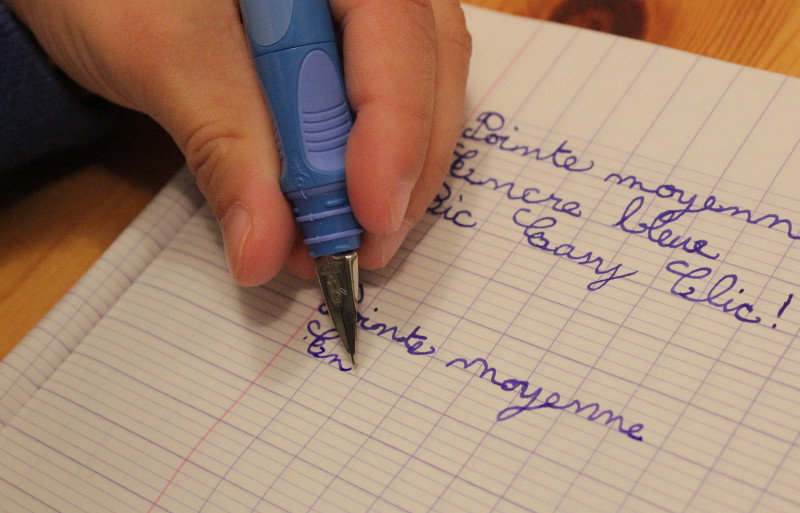 Pointe moyenne
Encre bleue
Bic Easy Clic !
Pointe moyenne
En